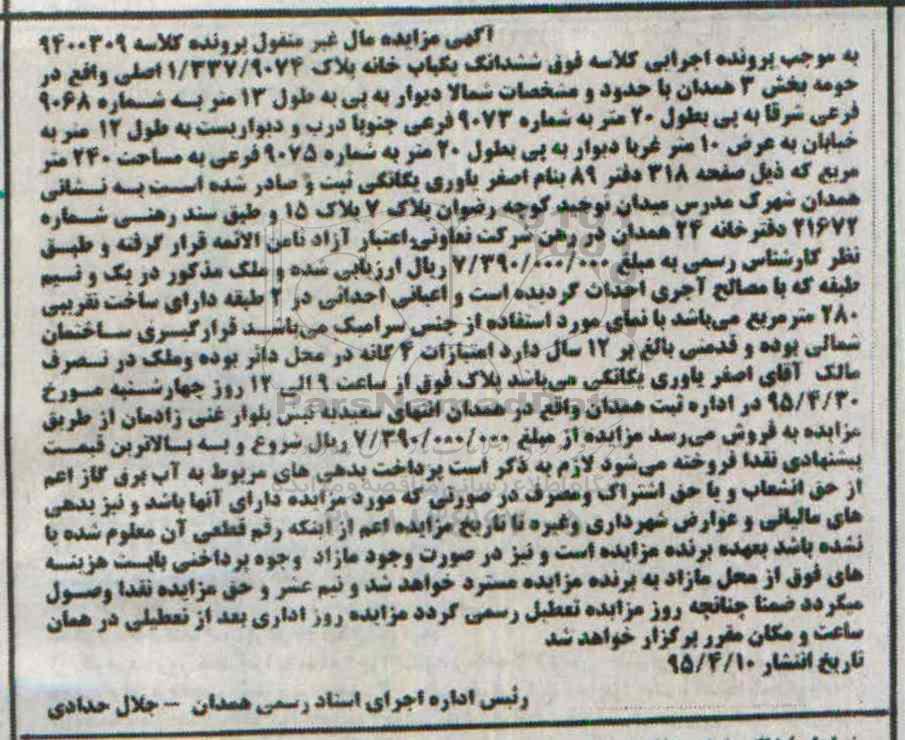 آگهی مزایده مال غیر منقول پرونده کلاسه ۹۴۰۰۳۰۹
به موجب پرونده اجرایی کلاسه فوق ششدانگ یکباب خانه پلاک ۱/۳۳۷/۹۰۷۴ اصلی واقع در
حومه بخش ۳ همدان با حدود و مشخصات شمالا دیوار به پی به طول ۱۳ متر به شماره ۹۰۶۸
فرعی شرقاً به پی بطول ۲۰ متر به شماره ۹۰۷۳ فرعی جنوبا درب و دیواریست به طول ۱۲ متر به
خیابان به عرض ۱۰ متر غربا دیوار به پی بطول ۲۰ متر به شماره ۹۰۷۵ فرعی به مساحت ۲۴۰ متر
مربع که ذیل صفحه ۳۱۸ دفتر ۸۹ بنام اصغر یاوری یگانگی ثبت و صادر شده است به نشانی
همدان شهرک مدرس میدان توحید کوچه رضوان پلاک ۷ پلاک ۱۵ و طبق سند رهنی شماره
۲۱۶۷۲ دفترخانه ۲۴ همدان در رهن شرکت تعاونی اعتبار آزاد ثامن الائمه قرار گرفته و طبق
نظر کارشناس رسمی به مبلغ ۷/۳۹۰/۰۰۰/۰۰۰ ریال ارزیابی شده و ملک مذکور در یک و نیم
طبقه که با مصالح آجری احداث گردیده است و اعیانی احداثی در ۲ طبقه دارای ساخت تقریبی
۲۸۰ مترمربع می‌باشد با نمای مورد استفاده از جنس سرامیک می‌باشد قرارگیری ساختمان
شمالی بوده و قدمتی بالغ بر ۱۲ سال دارد امتیازات ۴ گانه در محل دائر بوده وملک در تصرف
مالک آقای اصغر یاوری یگانگی می‌باشد پلاک فوق از ساعت ۹ الی ۱۲ روز چهارشنبه مورخ
۹۵/۴/۳۰ در اداره ثبت همدان واقع در همدان انتهای سعیدیه نبش بلوار غنی زادمان از طریق
مزایده به فروش می‌رسد مزایده از مبلغ ۷/۳۹۰/۰۰۰/۰۰۰ ریال شروع و به بالاترین قیمت
پیشنهادی نقدا فروخته می‌شود لازم به ذکر است پرداخت بدهی های مربوط به آب برق گاز اعم
از حق انشعاب و یا حق اشتراک ومصرف در صورتی که مورد مزایده دارای آنها باشد و نیز بدهی
های مالیاتی و عوارض شهرداری وغیره تا تاریخ مزایده اعم از اینکه رقم قطعی آن معلوم شده یا
نشده باشد بعهده برنده مزایده است و نیز در صورت وجود مازاد وجوه پرداختی بابت هزینه
های فوق از محل مازاد به برنده مزایده مسترد خواهد شد و نیم عشر و حق مزایده نقدا وصول
میگردد ضمنا چنانچه روز مزایده تعطیل رسمی گردد مزایده روز اداری بعد از تعطیلی در همان
ساعت و مکان مقرر برگزار خواهد شد
تاریخ انتشار ۹۵/۴/۱۰
رئیس اداره اجرای اسناد رسمی همدان - جلال حدادی
ParsNamadData